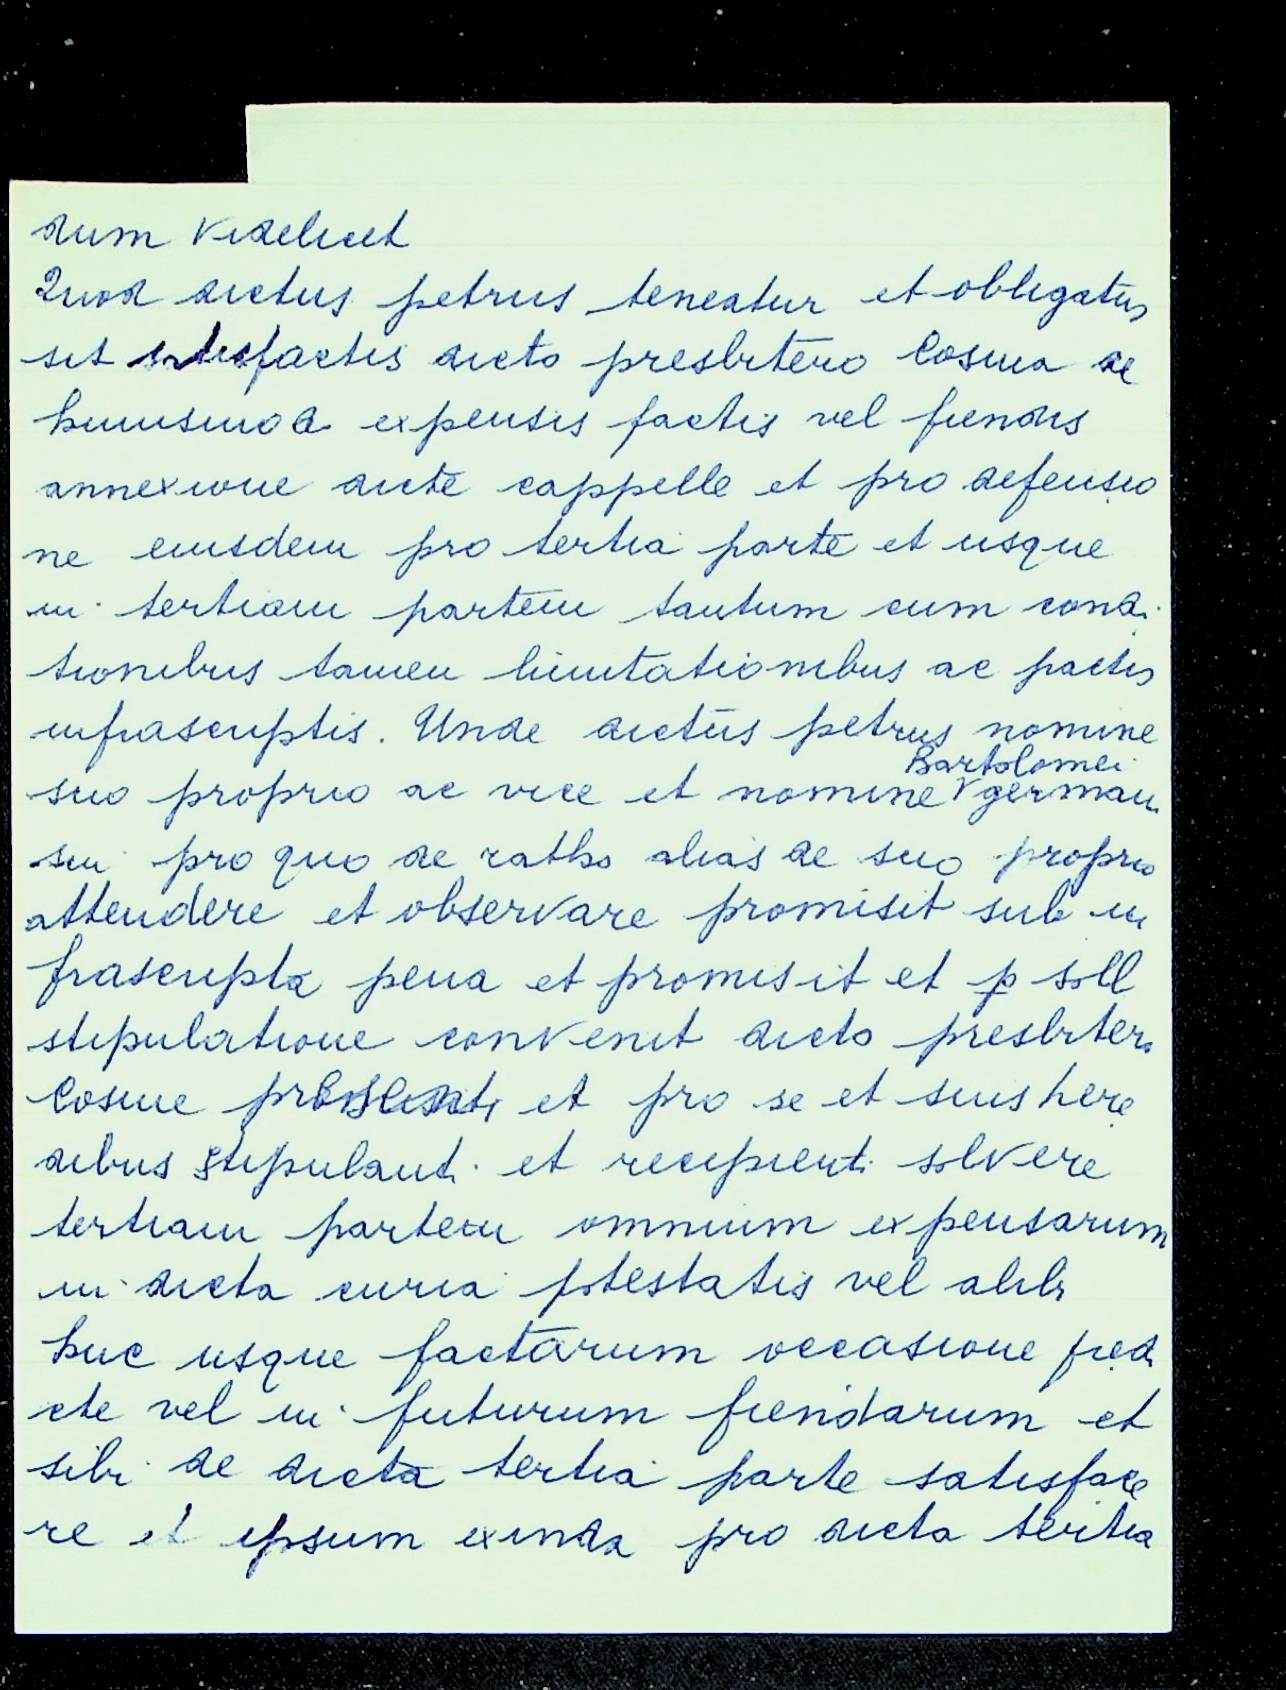 dum videlicet
Quod dictus petrus teneatur et obligatus
sit satisfactis dicto presbitero Cosma de
huiusmod expensis factis vel fiendis
annexione dicte cappelle et pro defensio
ne eiusdem pro tertia parte et usque
in tertiam partem tantum cum condi
tionibus tamen limitationibus ac pactis
infrascriptis. Unde dictus petrus nomine
Bartolomei
suo proprio ac vice et nomine V german
sui pro quo de ratho alias de suo proprio
attendere et observare promisit sub in
frascripta pena et promisit et p soll
stipulatione convenit dicto presbitero
Cosme presenti et pro se et suis here
dibus stipulanti et recipienti solvere
tertiam partem omnium expensarum
in dicta curia potestatis vel alibi
huc usque factarum occasione pred
cte vel in futurum fiendarum et
sibi de dicta tertia parte satisface
re et ipsum exinda pro dicta tertia